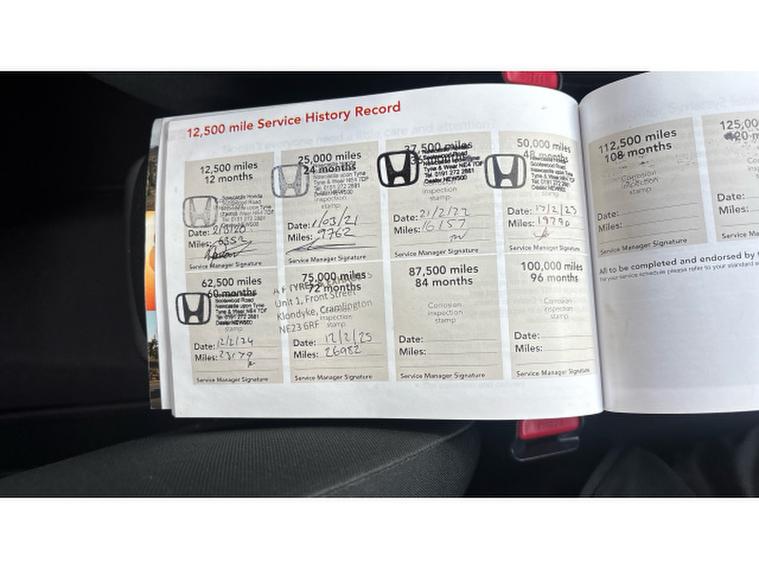 12,500 mile Service History Record
12,500 miles
12 months
Newcastle Honda
Scotswood Road
Newcastle upon Tyne
Tyne & Wear NE4 7DF
Tel: 0191 272 2881
Date:
Miles: 6352
Service Manager Signature
25,000 miles
24 months
Newcastle upon Tyne
Tyne & Wear NE4 7DF
Tel: 0191 272 2881
Dealer NEW500
inspection
stamp
Date: 1/03/21
Miles: 9762
Service Manager Signature
37,500 miles
Scotswood Road
Newcastle upon Tyne
Tyne & Wear NE4 7DF
Tel: 0191 272 2881
Dealer NEW500
inspection
stamp
Date: 21/2/22
Miles: 16157
Service Manager Signature
50,000 miles
48 months
Scotswood Road
Newcastle upon Tyne
Tyne & Wear NE4 7DF
Tel: 0191 272 2881
Dealer NEW500
inspection
stamp
Date: 17/2/23
Miles: 19790
Service Manager Signature
112,500 miles
108 months
Corrosion
inspection
stamp
Date:
Miles:
Service Manager Signature
125,00
Date:
Miles:
Service Manag
62,500 miles
60 months
Scotswood Road
Newcastle upon Tyne
Tyne & Wear NE4 7DF
Tel: 0191 272 2881
Dealer NEW500
stamp
Date: 12/2/24
Miles: 23179
Service Manager Signature
75,000 miles
72 months
Unit 1, Front Street
Klondyke, Cramlington
NE23 6RF
inspection
stamp
Date: 12/2/25
Miles: 26982
Service Manager Signature
87,500 miles
84 months
Corrosion
inspection
stamp
Date:
Miles:
Service Manager Signature
100,000 miles
96 months
Corrosion
inspection
stamp
Date:
Miles:
Service Manager Signature
All to be completed and endorsed by
for your service schedule please refer to your standard